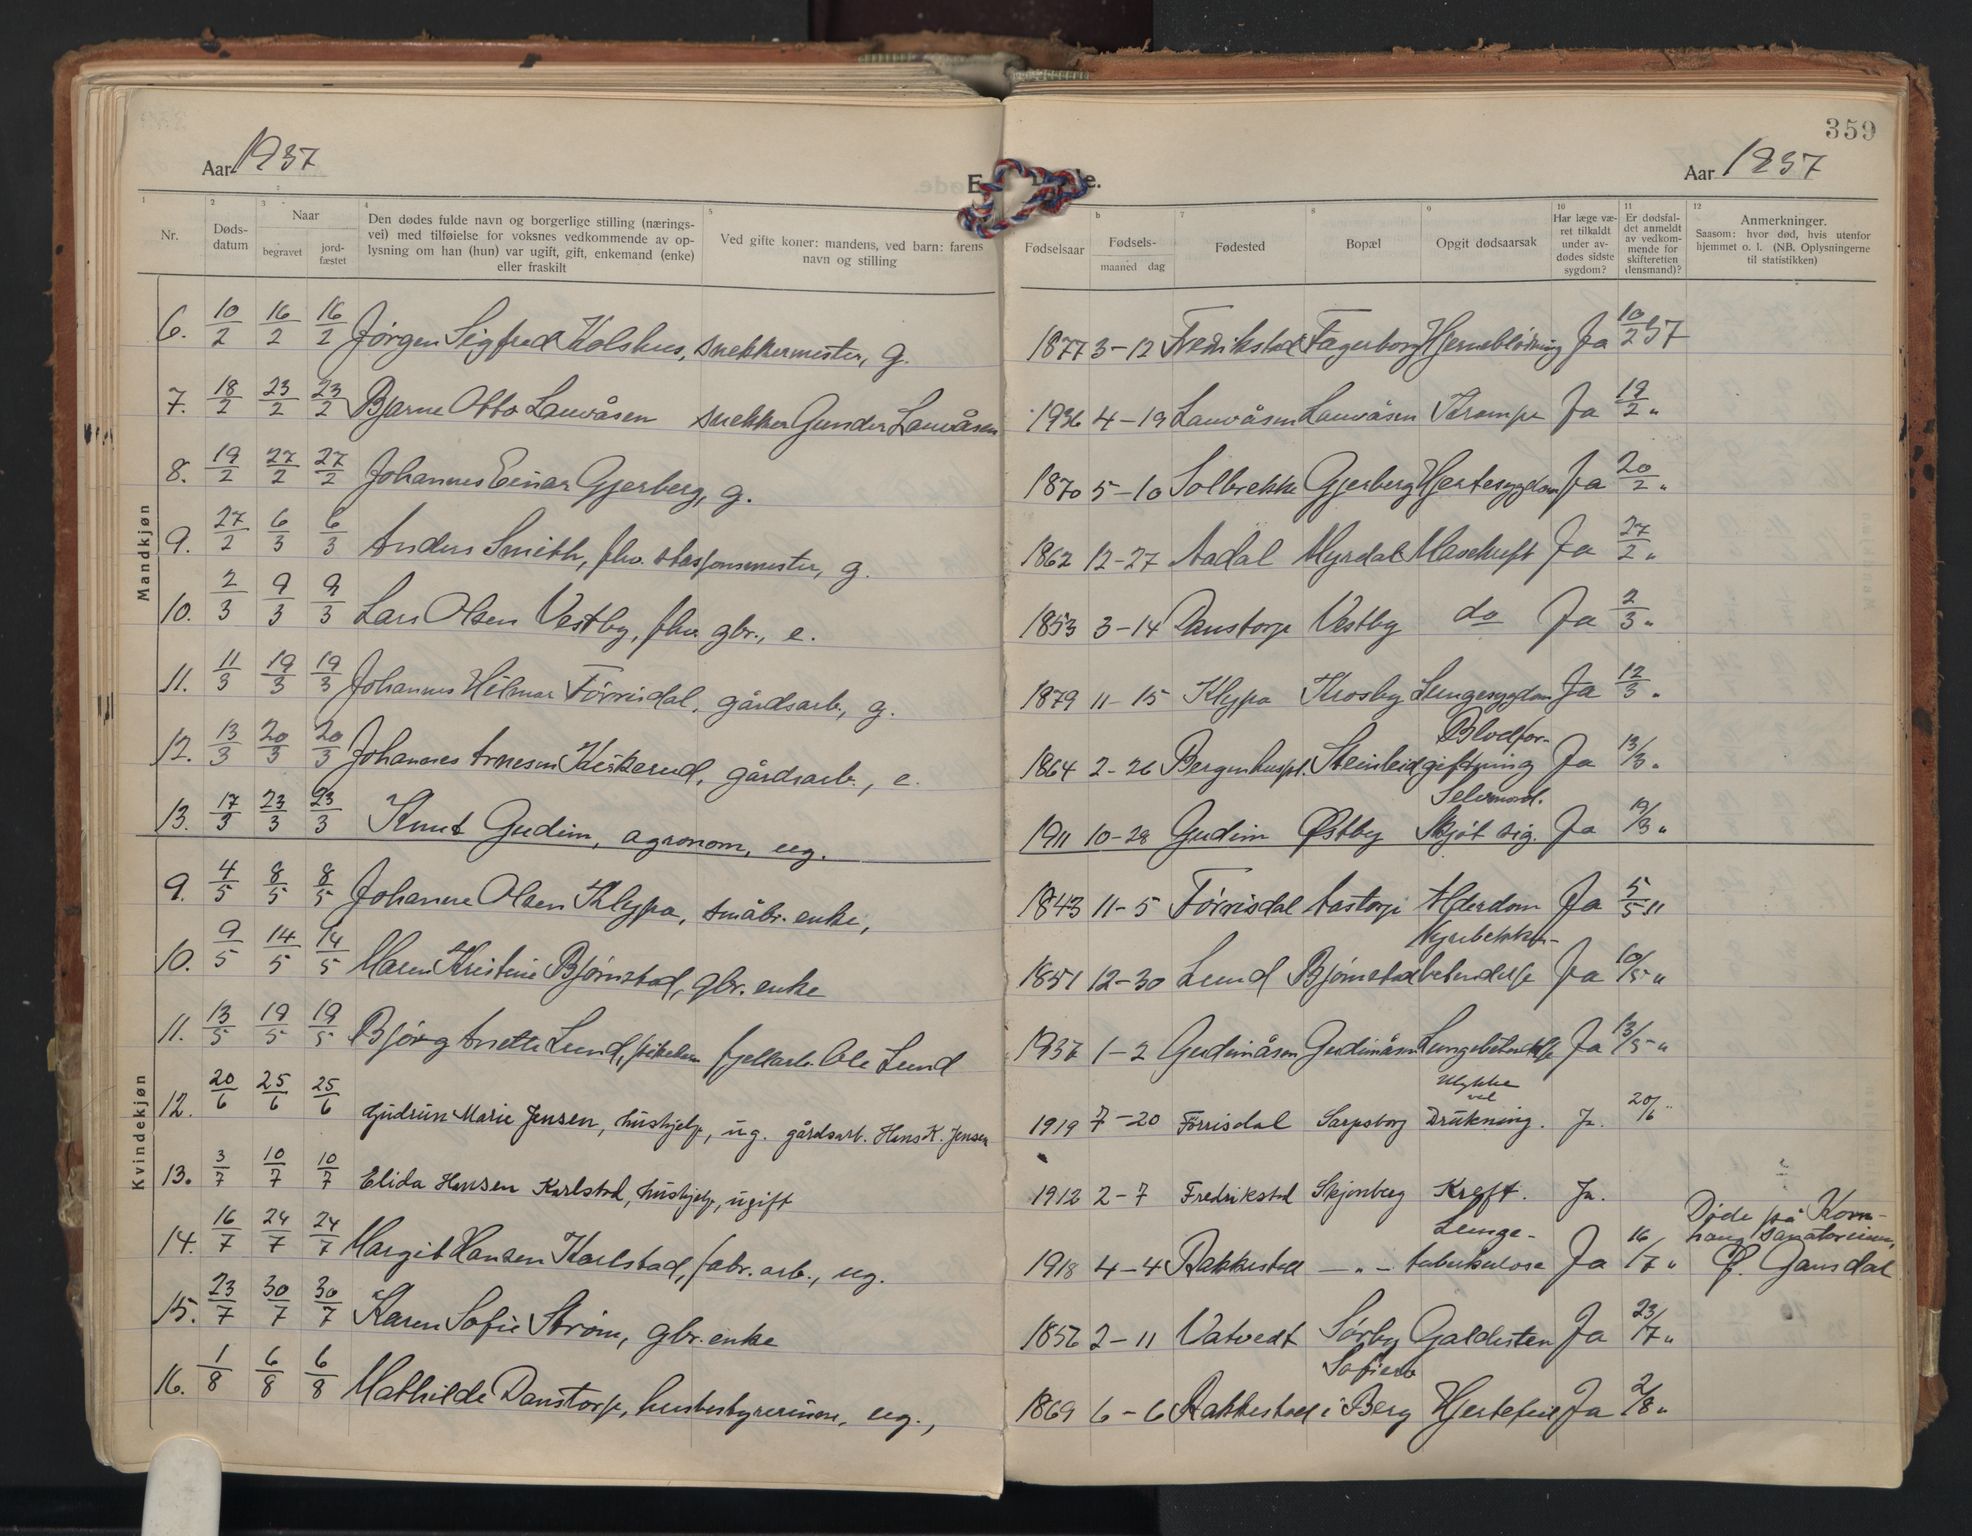 359
Aar 1937
E. Døde.
Aar 1937
1 Nr.
2 Døds-datum
3 Naar begravet jord-fæstet
4 Den dødes fulde navn og borgerlige stilling (nærings-vei) med tilføielse for voksnes vedkommende av op-lysning om han (hun) var ugift, gift, enkemand (enke) eller fraskilt
5 Ved gifte koner: mandens, ved barn: farens navn og stilling
Fødselsaar
b Fødsels- maaned dag
7 Fødested
8 Bopæl
9 Opgit dødsaarsak
10 Har læge væ-ret tilkaldt under av-dødes sidste sygdom?
11 Er dødsfal-det anmeldt av vedkom-mende for skifteretten (lensmand)?
12 Anmerkninger. Saasom: hvor død, hvis utenfor hjemmet o. l. (NB. Oplysningerne til statistikken)
Mandkjøn
6. 10/2 16/2 16/2 Jørgen Sigfred Kolshus, snekkermester, g. 1877 3-12 Fredrikstad Fagerborg Hjerneblødning Ja 10/2 37
7. 18/2 23/2 23/2 Bjarne Otto Lauvåsen snekker Gunder Lauvåsen 1936 4-19 Lauvåsen Lauvåsen Krampe Ja 19/2 "
8. 19/2 27/2 27/2 Johannes Einar Gjerberg, g. 1870 5-10 Solbrekke Gjerberg Hjertesygdom Ja 20/2 "
9. 27/2 6/3 6/3 Anders Smith, fhv. stasjonsmester, g. 1862 12-27 Aadal Myrdal Mavekreft Ja 27/2 "
10. 2/3 9/3 9/3 Lars Olsen Vestby, fhv. gbr., e. 1853 3-14 Danstorp Vestby do Ja 2/3 "
11. 11/3 19/3 19/3 Johannes Hilmar Førrisdal, gårdsarb., g. 1879 11-15 Klypa Krosby Lungesygdom Ja 12/3 "
12. 13/3 20/3 20/3 Johannes Arnesen Kiskerud, gårdsarb., e. 1864 2-26 Bergenhuspl. Steinleid Blodfor-giftning Ja 13/3 "
13. 17/3 23/3 23/3 Knut Gudim, agronom, ug. 1911 10-28 Gudim Østby Selvmord. Skjøt sig. Ja 19/3 "
Kvindekjøn
9. 4/5 8/5 8/5 Johanne Olsen Klypa, småbr. enke, 1843 11-5 Førrisdal Aastorp Alderdom Ja 5/5 "
10. 9/5 14/5 14/5 Maren Kristine Bjørnstad, gbr. enke 1851 12-30 Lund Bjørnstad Nyrebekken-betendelse Ja 10/5 "
11. 13/5 19/5 19/5 Bjørg Anette Lund, pikebarn fjellarb. Ole Lund 1937 1-2 Gudimåsen Gudimåsen Lungebetendelse Ja 13/5 "
12. 20/6 25/6 25/6 Gudrun Marie Jensen, hushjelp, ug. gårdsarb. Hans K. Jensen 1919 7-20 Førrisdal Sarpsborg Ulykke ved Drukning. Ja. 20/6 "
13. 3/7 10/7 10/7 Elida Hansen Karlstad, hushjelp, ugift 1912 2-7 Fredrikstad Skjønberg Kreft. Ja.
14. 16/7 24/7 24/7 Margit Hansen Karlstad, fabr. arb., ug. 1918 4-4 Rakkestad — " — Lunge-tuberkulose Ja 16/7 " Døde på Korn-haug sanatorium, Ø. Gausdal
15. 23/7 30/7 30/7 Karen Sofie Strøm, gbr. enke 1856 2-11 Vatvedt Sørby Galdesten Ja 23/7 "
16. 1/8 6/8 6/8 Mathilde Danstorp, husbestyrerinne, ug., 1869 6-6 Rakkestad Sofiero i Berg Hjertefeil Ja 2/8 "